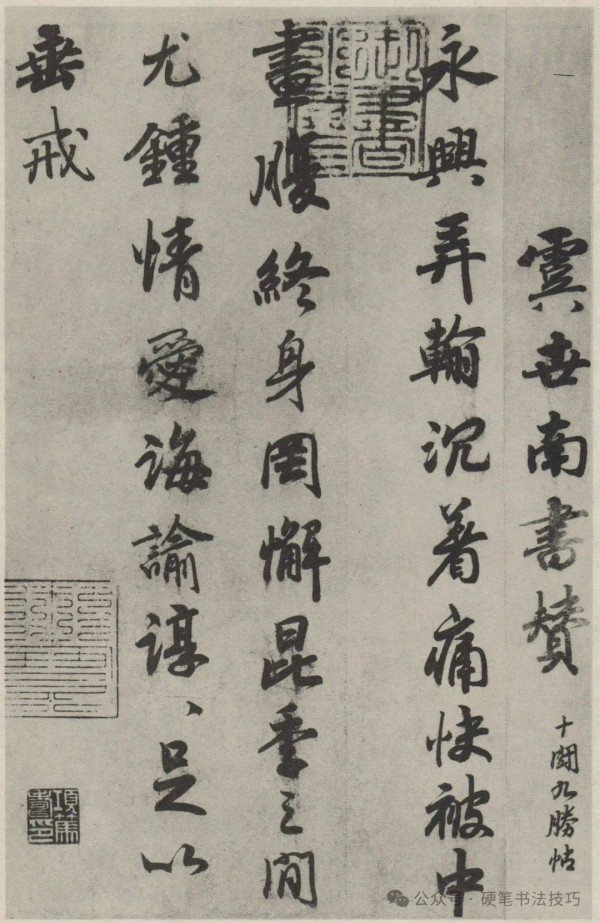 虞世南書贊
十闘九勝帖
永興弄翰沉著痛快被中
畫腹終身罔懈昆季之間
尤鍾情愛誨諭諄、足以
垂戒
公众号·硬笔书法技巧